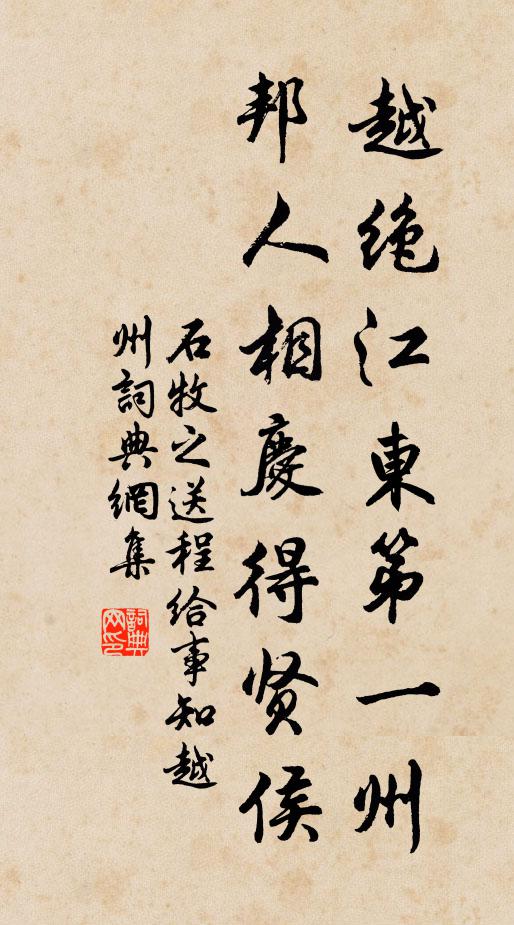 越絶江東第一州
邦人相慶得贤侯
石牧之送程给事知越
州詞典網集
詞典网印